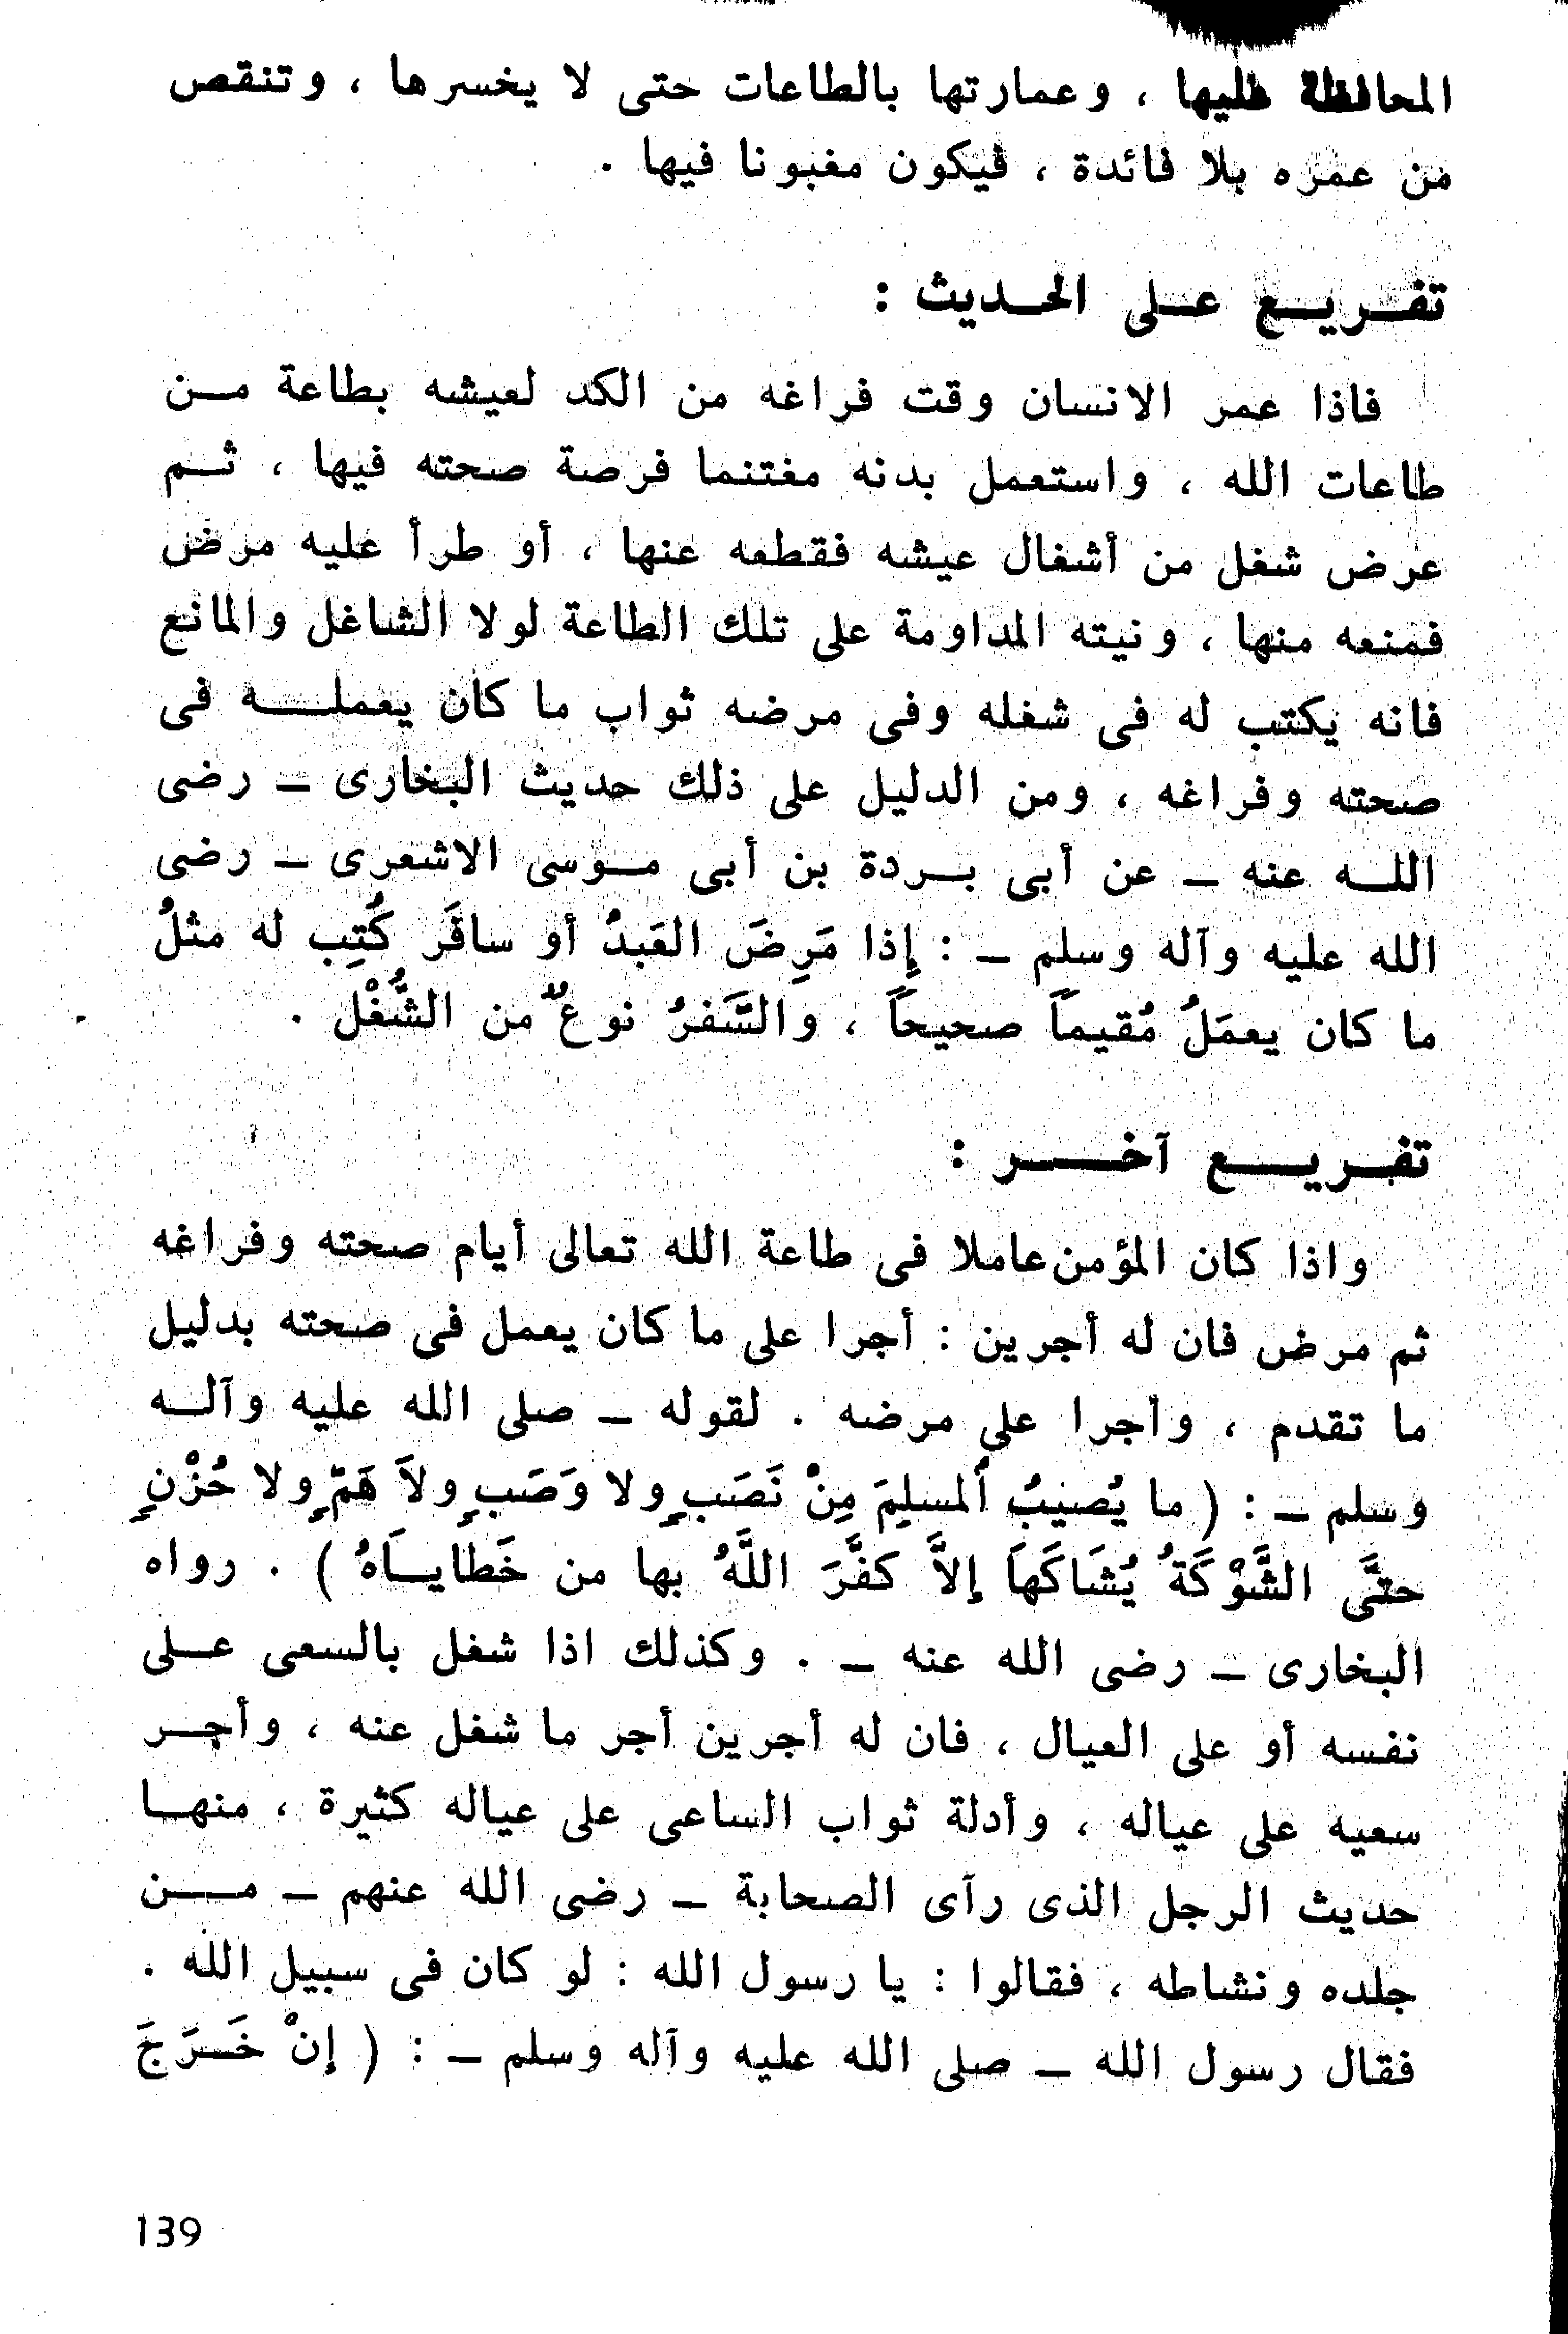 المحافظة عليها ، وعمارتها بالطاعات حتى لا يخسرها ، وتنقص
من عمره بلا فائدة ، فيكون مغبونا فيها .
تفريع على الحديث :
فاذا عمر الانسان وقت فراغه من الكد لعيشه بطاعة من
طاعات الله ، واستعمل بدنه مغتنما فرصة صحته فيها ، ثم
عرض شغل من أشغال عيشه فقطعه عنها ، أو طرأ عليه مرض
فمنعه منها ، ونيته المداومة على تلك الطاعة لولا الشاغل والمانع
فانه يكتب له فى شغله وفى مرضه ثواب ما كان يعمله فى
صحته وفراغه ، ومن الدليل على ذلك حديث البخارى – رضى
الله عنه – عن أبى بردة بن أبى موسى الاشعرى – رضى
الله عليه وآله وسلم – : إِذا مَرِضَ العَبدُ أو سافَر كُتِب له مثلُ
ما كان يعمَلُ مُقيماً صحيحاً ، والسَّفرُ نوعٌ من الشُّغْل .
تفريع آخر :
واذا كان المؤمن عاملا فى طاعة الله تعالى أيام صحته وفراغه
ثم مرض فان له أجرين : أجرا على ما كان يعمل فى صحته بدليل
ما تقدم ، وأجرا على مرضه . لقوله – صلى الله عليه وآله
وسلم – : ( ما يُصيبُ اَلمسلِمَ مِنْ نَصَبٍ ولا وَصَبٍ ولاَ هَمٍّ ولا حُزْنٍ
حتَّى الشَّوْكَةُ يُشَاكَهاَ إلاَّ كفَّرَ اللَّهُ بها من خَطاياَهُ ) . رواه
البخارى – رضى الله عنه – . وكذلك اذا شغل بالسعى على
نفسه أو على العيال ، فان له أجرين أجر ما شغل عنه ، وأجر
سعيه على عياله ، وأدلة ثواب الساعى على عياله كثيرة ، منها
حديث الرجل الذى رآى الصحابة – رضى الله عنهم – من
جلده ونشاطه ، فقالوا : يا رسول الله : لو كان فى سبيل الله .
فقال رسول الله – صلى الله عليه وآله وسلم – : ( إنْ خَرَجَ
139